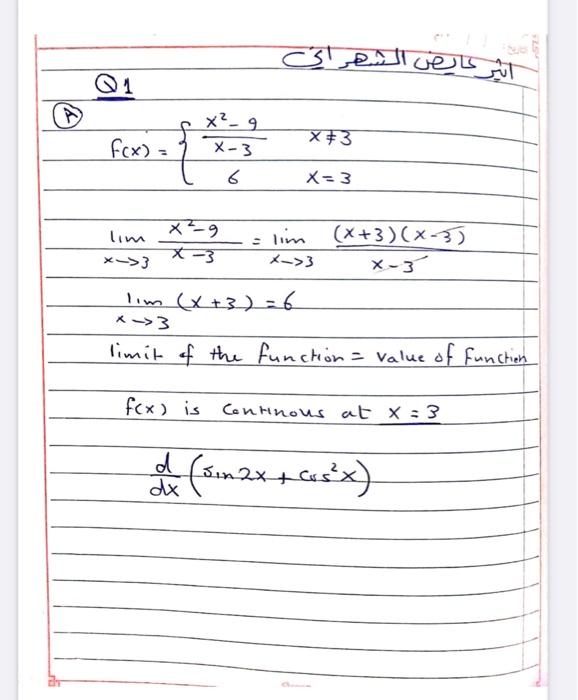 اثير عايض الشهراني
Q1
A
f(x) = { x²-9 / x-3 x≠3
6 x=3
lim x->3 x²-9 / x-3 = lim x->3 (x+3)(x-3) / x-3
lim x->3 (x+3) = 6
limit of the function = value of function
f(x) is continous at x=3
d/dx (sin2x + cos²x)